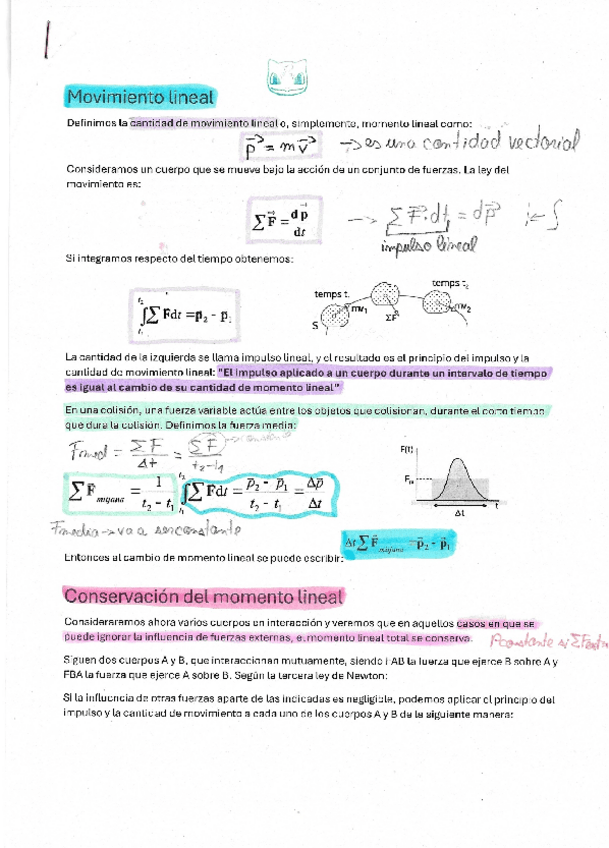 Movimiento lineal
Definimos la cantidad de movimiento lineal o, simplemente, momento lineal como:
p⃗ = m v⃗ → es una cantidad vectorial
Consideramos un cuerpo que se mueve bajo la acción de un conjunto de fuerzas. La ley del
movimiento es:
∑F⃗ = dp⃗/dt → ∑F⃗·dt = dp⃗
impulso lineal
Si integramos respecto del tiempo obtenemos:
∫∑Fdt = p₂ - p₁
temps t₁ temps t₂
mv₁ mv₂
S ΣF
La cantidad de la izquierda se llama impulso lineal, y el resultado es el principio del impulso y la
cantidad de movimiento lineal: "El impulso aplicado a un cuerpo durante un intervalo de tiempo
es igual al cambio de su cantidad de momento lineal"
En una colisión, una fuerza variable actúa entre los objetos que colisionan, durante el corto tiempo
que dura la colisión. Definimos la fuerza media:
Fmed = ΣF/Δt = ΣF/t₂-t₁
F(t)
Fm
t
Δt
∑F mitjana = 1/(t₂ - t₁) ∫∑Fdt = (p₂ - p₁)/(t₂ - t₁) = Δp/Δt
Fmedia → va a ser constante
Δt∑F mitjana = p₂ - p₁
Entonces al cambio de momento lineal se puede escribir:
Conservación del momento lineal
Consideraremos ahora varios cuerpos en interacción y veremos que en aquellos casos en que se
puede ignorar la influencia de fuerzas externas, el momento lineal total se conserva. Pconstante si ΣFext
Siguen dos cuerpos A y B, que interaccionan mutuamente, siendo FAB la fuerza que ejerce B sobre A y
FBA la fuerza que ejerce A sobre B. Según la tercera ley de Newton:
Si la influencia de otras fuerzas aparte de las indicadas es negligible, podemos aplicar el principio del
impulso y la cantidad de movimiento a cada uno de los cuerpos A y B de la siguiente manera: